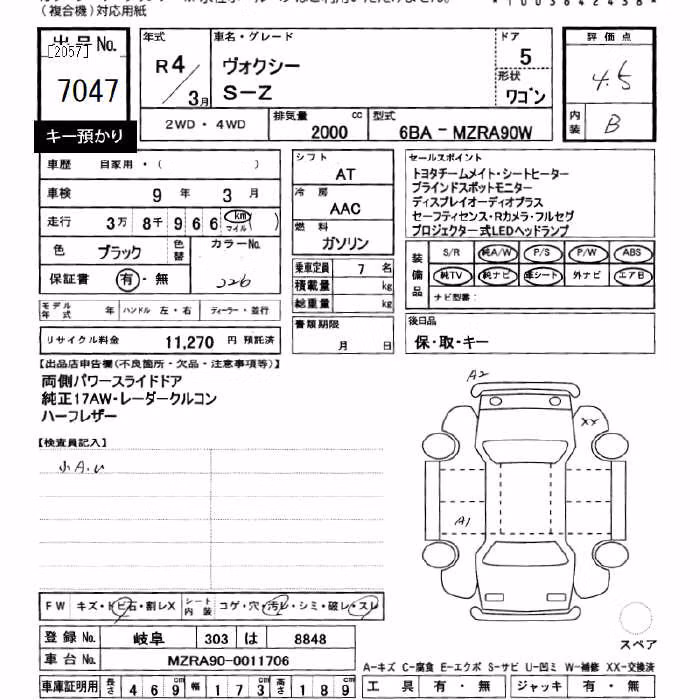 (複合機)対応用紙
出品No.
[2057]
7047
キー預かり
年式
R4/3月
車名・グレード
ヴォクシー
S-Z
ドア
5
形状
ワゴン
評価点
4.5
内装
B
2WD・4WD
排気量
2000 cc
型式
6BA-MZRA90W
車歴 自家用・( )
車検 9 年 3 月
走行 3万 8千 9 6 6 km マイル ( )
色 ブラック 色替 カラーNo.
保証書 有・無 226
モデル年式 年 ハンドル 左・右 ディーラー・並行
リサイクル料金 11,270 円 預託済
シフト
AT
冷房
AAC
燃料
ガソリン
乗車定員 7 名
積載量 kg
総重量 kg
書類期限
月 日
セールスポイント
トヨタチームメイト・シートヒーター
ブラインドスポットモニター
ディスプレイオーディオプラス
セーフティセンス・Rカメラ・フルセグ
プロジェクター式LEDヘッドランプ
装備品
S/R 純A/W P/S P/W ABS
純TV 純ナビ 革シート 外ナビ エアB
ナビ型番:
後日品
保・取・キー
【出品店申告欄(不良箇所・欠品・注意事項等)】
両側パワースライドドア
純正17AW・レーダークルコン
ハーフレザー
【検査員記入】
小A.U
A2
XX
A1
スペア
FW キズ・トビ石・割レX シート内装 コゲ・穴・汚レ・シミ・破レ・スレ
登録No. 岐阜 303 は 8848
車台No. MZRA90-0011706
車庫証明用 長さ 469cm 幅 173cm 高さ 189cm
A-キズ C-腐食 E-エクボ S-サビ U-凹ミ W-補修 XX-交換済
工具 有・無 ジャッキ 有・無